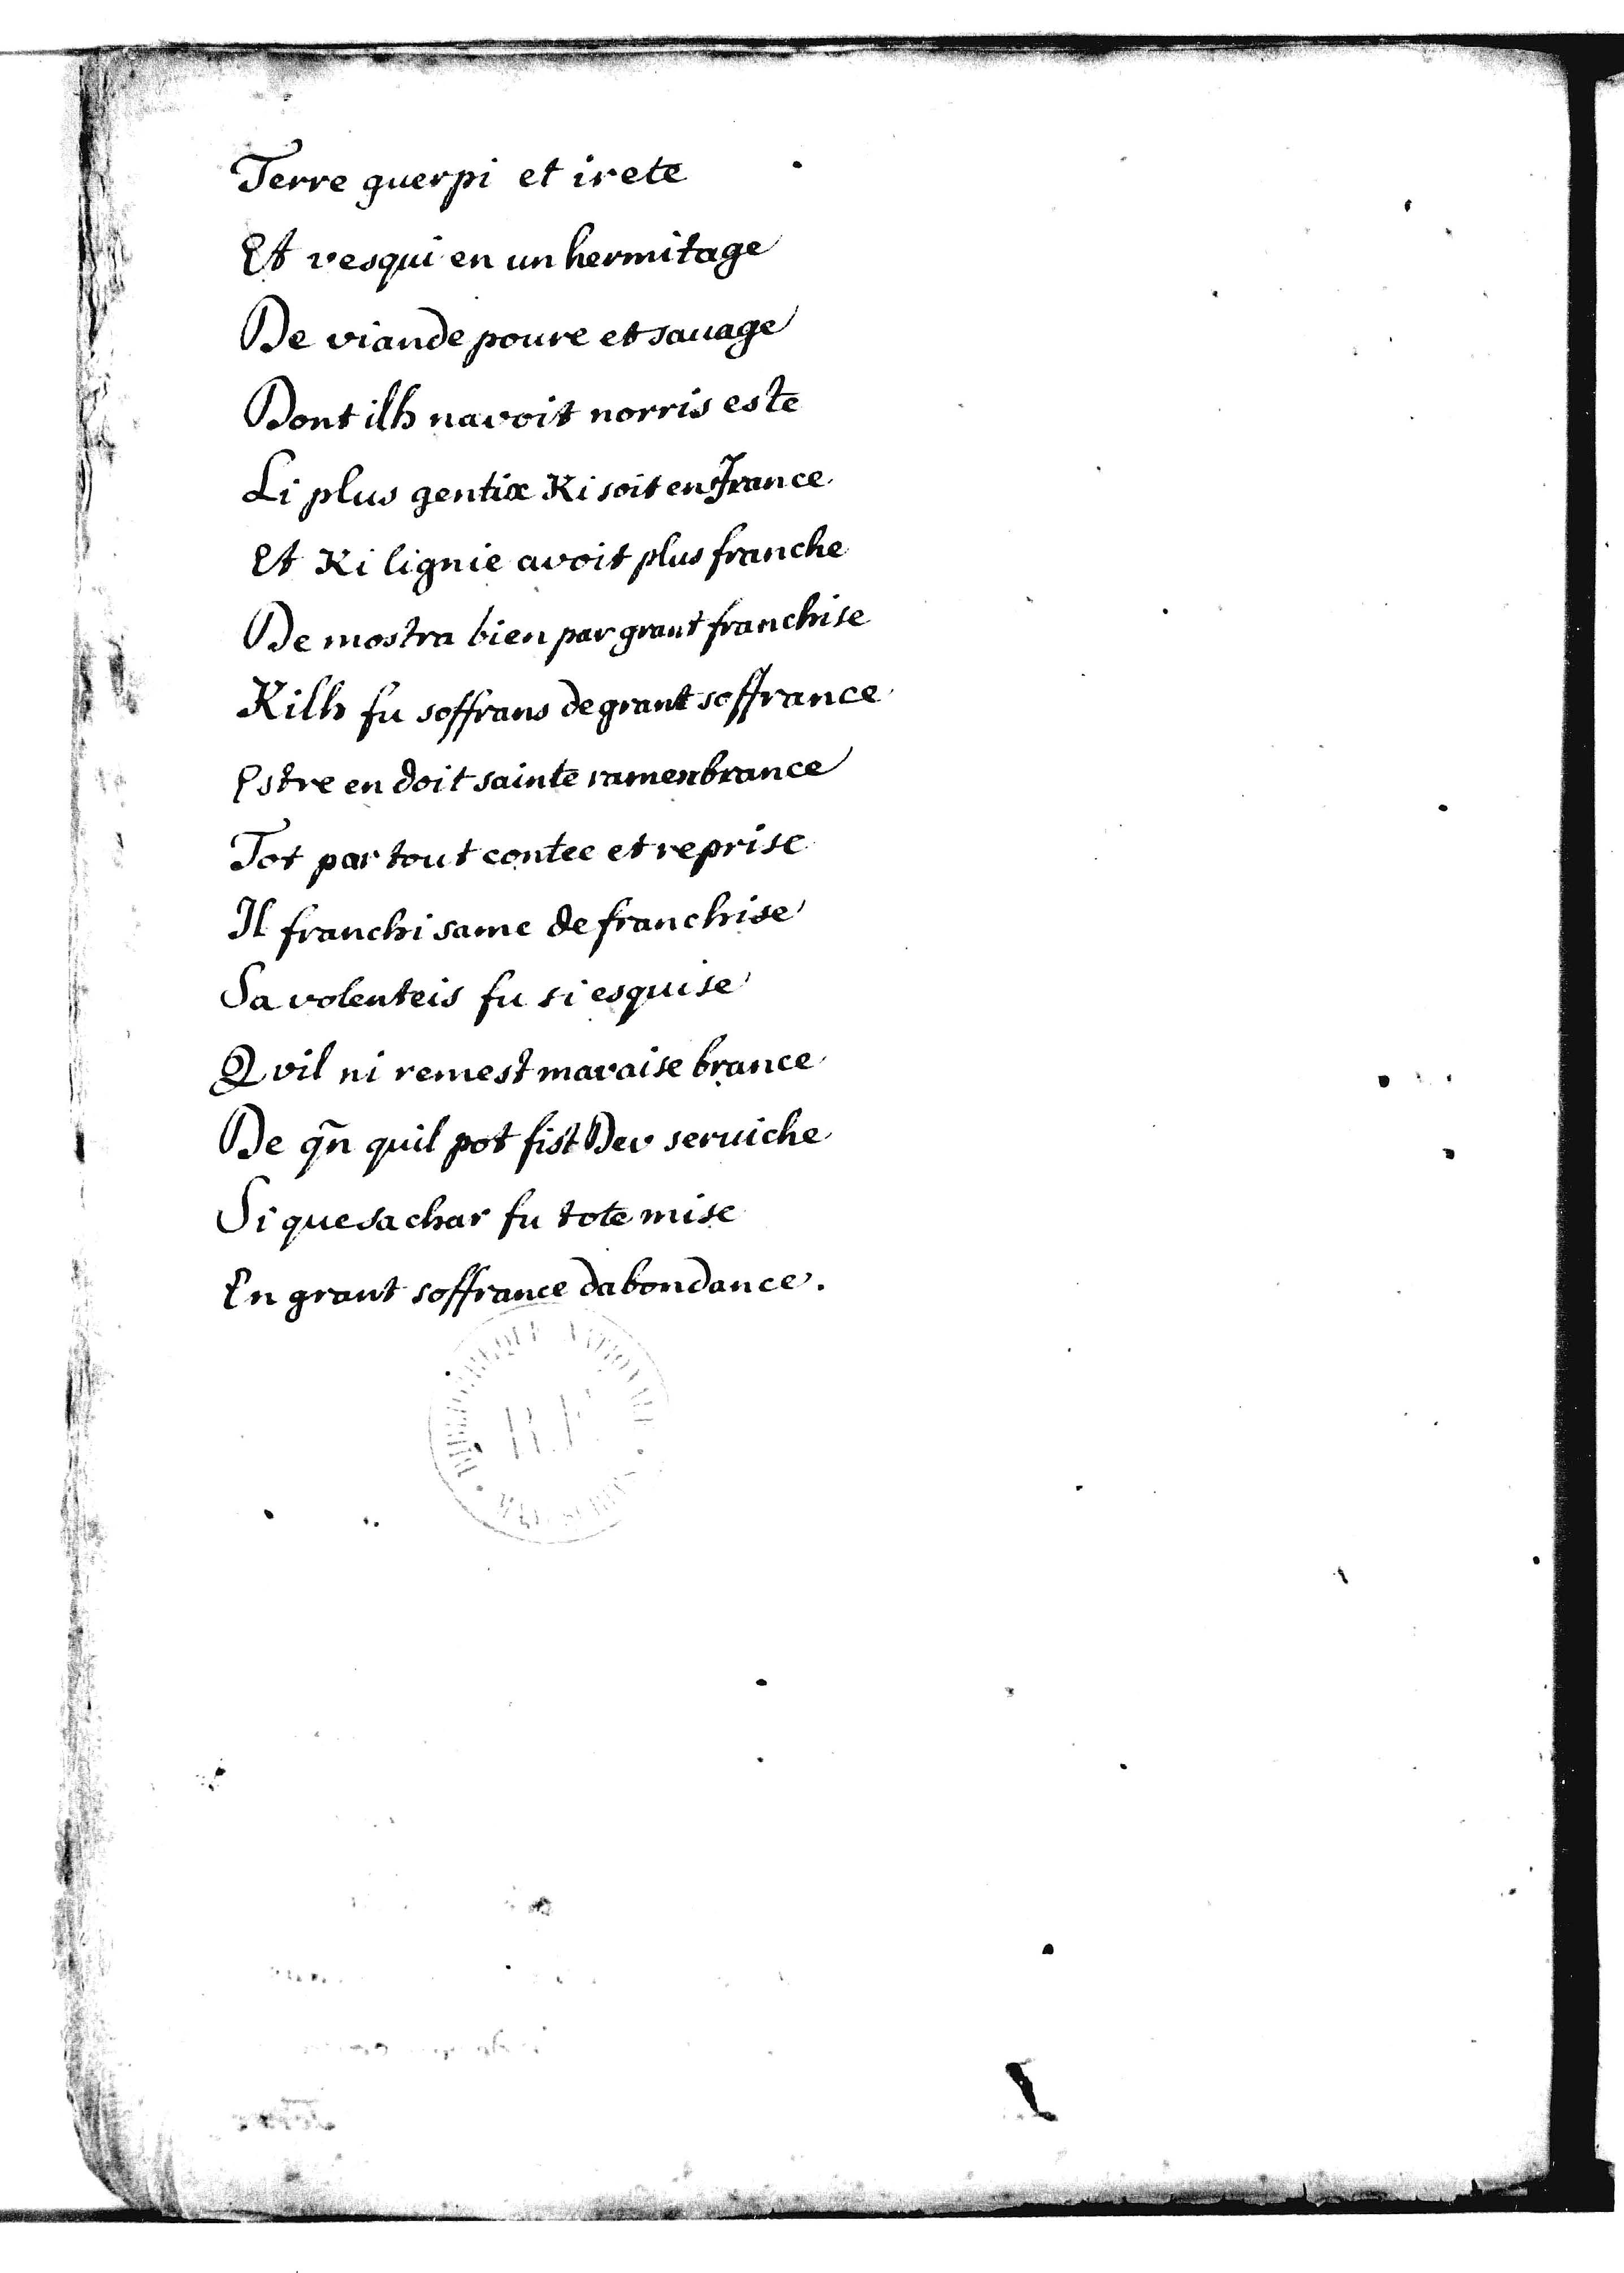 Terre guerpi et irete
Et vesqui en un hermitage
De viande poure et sauage
Dont ilh navoit norris este
Li plus gentix Ki soit en France
Et Ki lignie avoit plus franche
De mostra bien par grant franchise
Kilh fu soffrans de grant soffrance
Estre en doit sainte ramenbrance
Tot par tout contee et reprise
Il franchi same de franchise
Sa volenteis fu si esquise
Qvil ni remest mavaise brance
De qn̄ quil pot fist Dev seruiche
Si que sa char fu tote mise
En grant soffrance dabondance.
BIBLIOTHEQUE NATIONALE
R.F.
MANUSCRITS